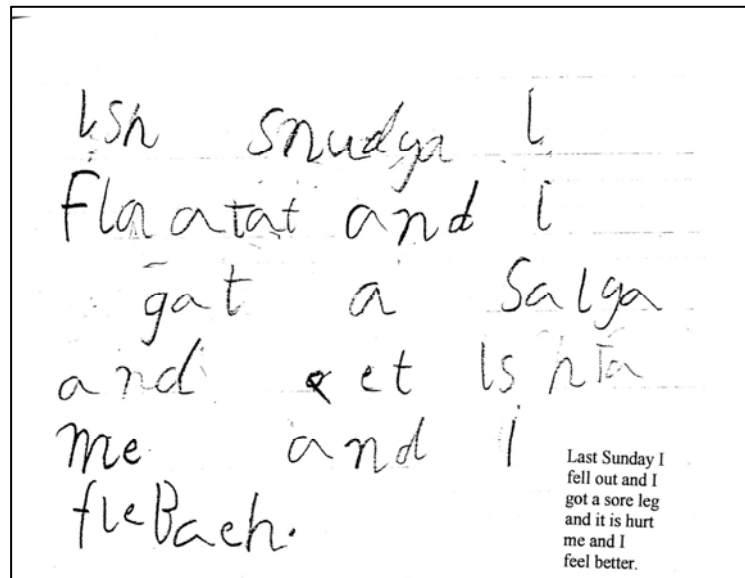 lsh snudga l
Fla atat and l
gat a Salga
and et ls hta
me and i
fleBaeh.
Last Sunday I
fell out and I
got a sore leg
and it is hurt
me and I
feel better.